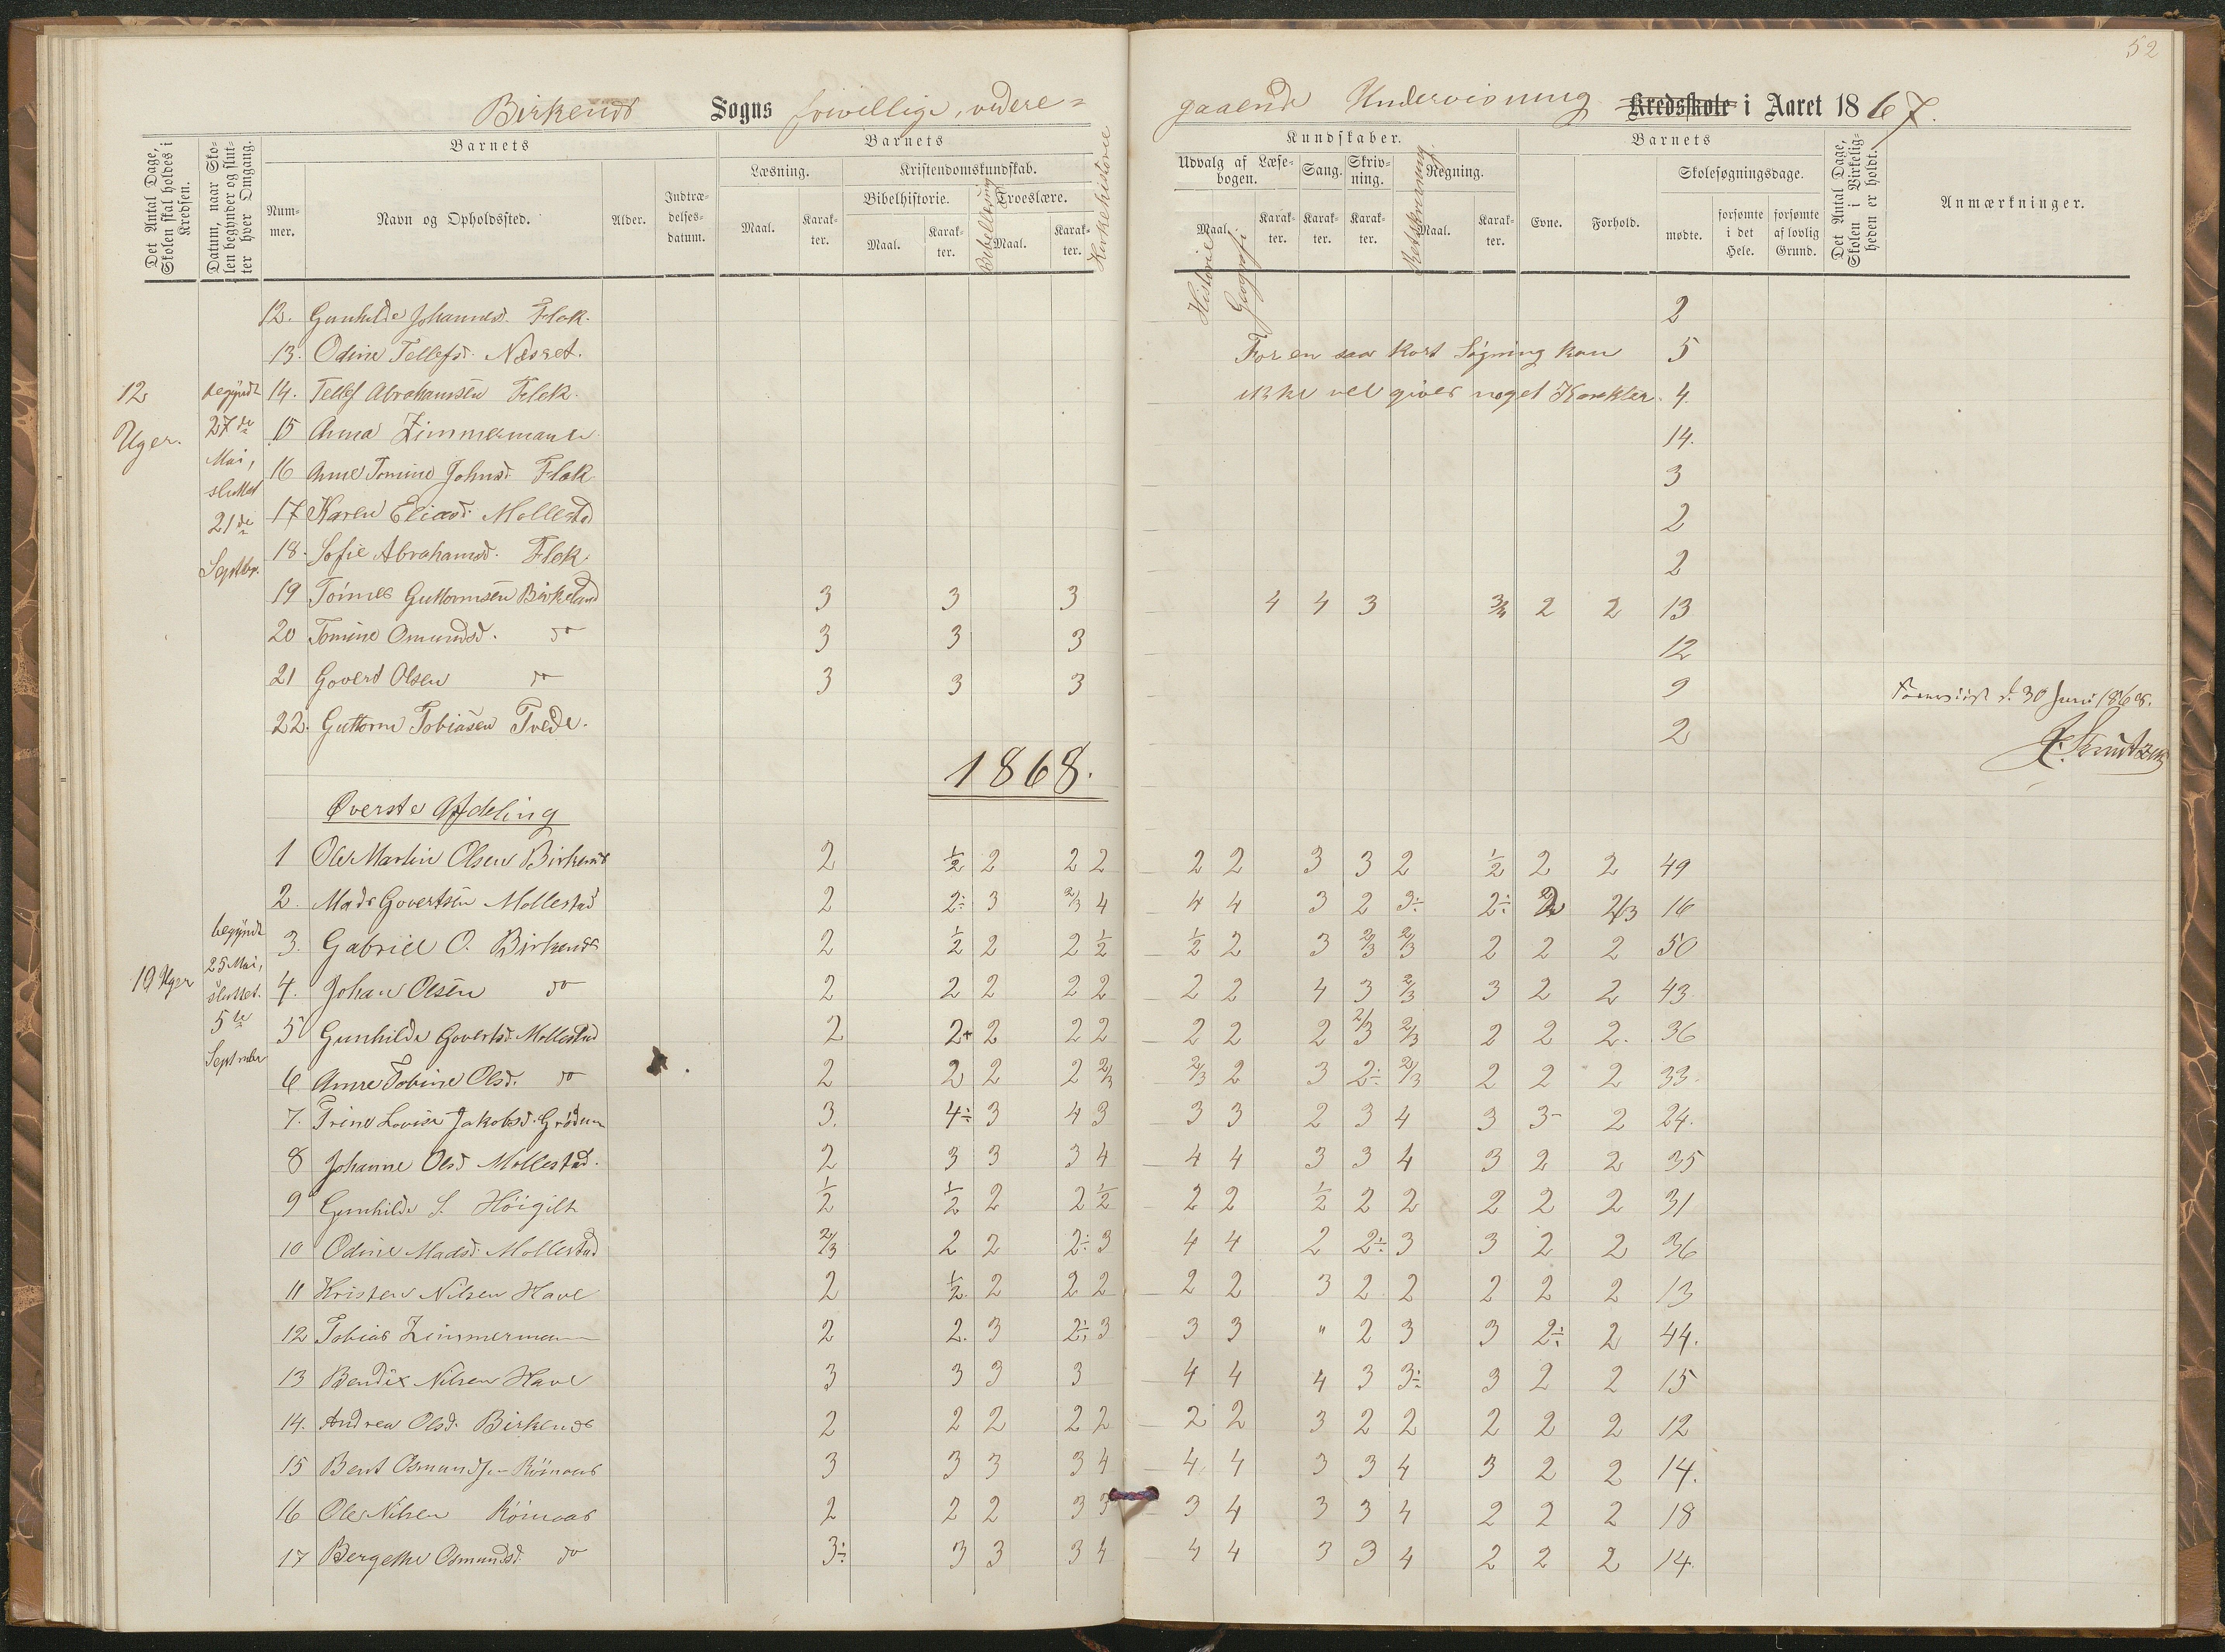 52
Birkenes Sogns frivillige, videre=
gaaende Undervisning Kredsskole i Aaret 1867.
Det Antal Dage, Skolen skal holdes i Kredsen.
Datum, naar Skolen begynder og slutter hver Omgang.
Barnets
Num-mer.
Navn og Opholdssted.
Alder.
Indtræ-delses-datum.
Barnets
Læsning.
Maal. Karak-ter.
Kristendomskundskab.
Bibelhistorie.
Maal. Karak-ter.
Bibellæsning
Troeslære.
Maal. Karak-ter.
Kirkehistorie
Kundskaber.
Udvalg af Læse-bogen.
Maal. Karak-ter.
Historie
Geografi
Sang.
Karak-ter.
Skriv-ning.
Karak-ter.
Retskrivning.
Regning.
Maal. Karak-ter.
Barnets
Evne. Forhold.
Skolesøgningsdage.
mødte. forsømte i det Hele. forsømte af lovlig Grund.
Det Antal Dage, Skolen i Virkelig-heden er holdt.
Anmærkninger.
12 Uger.
begyndt 27de Mai, sluttet 21de Septbr.
12. Gunhilde Johannesd. Flak. 2
13. Odine Tellefsd. Næset. For en saa kort Søgning kan 5
14. Tellef Abrahamsen Flak. ikke vel gives noget Karakter. 4.
15 Anna Zimmermann 14.
16 Anne Tomine Johnsd. Flak 3
17 Karen Eliasd. Mollestad 2
18. Sofie Abrahamsd. Flak. 2
19 Tønnes Guttormsen Birkeland 3 3 3 4 4 3 3/4 2 2 13
20 Tomine Omundsd. do 3 3 3 12
21 Govert Olsen do 3 3 3 9
22. Guttorm Tobiasen Tvede. 2
d. 30 Juni 1868.
Knutzen
1868.
Øverste Afdeling
begyndt 25 Mai, sluttet. 5te September
10 Uger
1 Ole Martin Olsen Birkenes 2 1/2 2 2 2 2 2 3 3 2 1/2 2 2 49
2. Mads Govertsen Mollestad 2 2÷ 3 2/3 4 4 4 3 2 3÷ 2÷ 2 2/3 16
3. Gabriel O. Birkenes 2 1/2 2 2 1/2 1/2 2 3 2/3 2/3 2 2 2 50
4. Johan Olsen do 2 2 2 2 2 2 2 4 3 2/3 3 2 2 43
5 Gunhilde Govertsd. Mollestad 2 2+ 2 2 2 2 2 2 2/3 2/3 2 2 2. 36
6 Anne Tobine Olsd. do 2 2 2 2 2/3 2/3 2 3 2÷ 2/3 2 2 2 33.
7. Trine Lovise Jakobsd. Grødum 3. 4÷ 3 4 3 3 3 2 3 4 3 3- 2 24.
8 Johanne Olsd. Mollestad. 2 3 3 3 4 4 4 3 3 4 3 2 2 35
9 Gunhilde S. Høigilt 1/2 1/2 2 2 1/2 2 2 1/2 2 2 2 2 2 31
10 Odine Madsd. Mollestad 2/3 2 2 2÷ 3 4 4 2 2÷ 3 3 2 2 36
11 Kristen Nilsen Have 2 1/2 2 2 2 2 2 3 2 2 2 2 2 13
12 Tobias Zimmermann 2 2. 3 2÷ 3 3 3 " 2 3 3 2÷ 2 44.
13 Bendix Nilsen Have 3 3 3 3 4 4 4 3 3÷ 3 2 2 15
14. Andrea Olsd. Birkenes 2 2 2 2 2 2 2 3 2 2 2 2 2 12
15 Bent Osmundsen Rømaas 3 3 3 3 4 4 4 3 3 4 3 2 2 14.
16 Ole Nilsen Rømaas 2 2 2 3 3 3 4 3 3 4 2 2 2 18
17 Bergethe Osmundsd. do 3÷ 3 3 3 4 4 4 3 3 4 2 2 2 14.